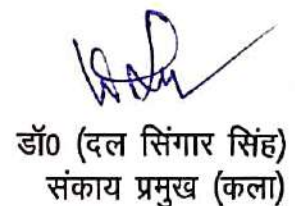 डॉ0 (दल सिंगार सिंह)
संकाय प्रमुख (कला)